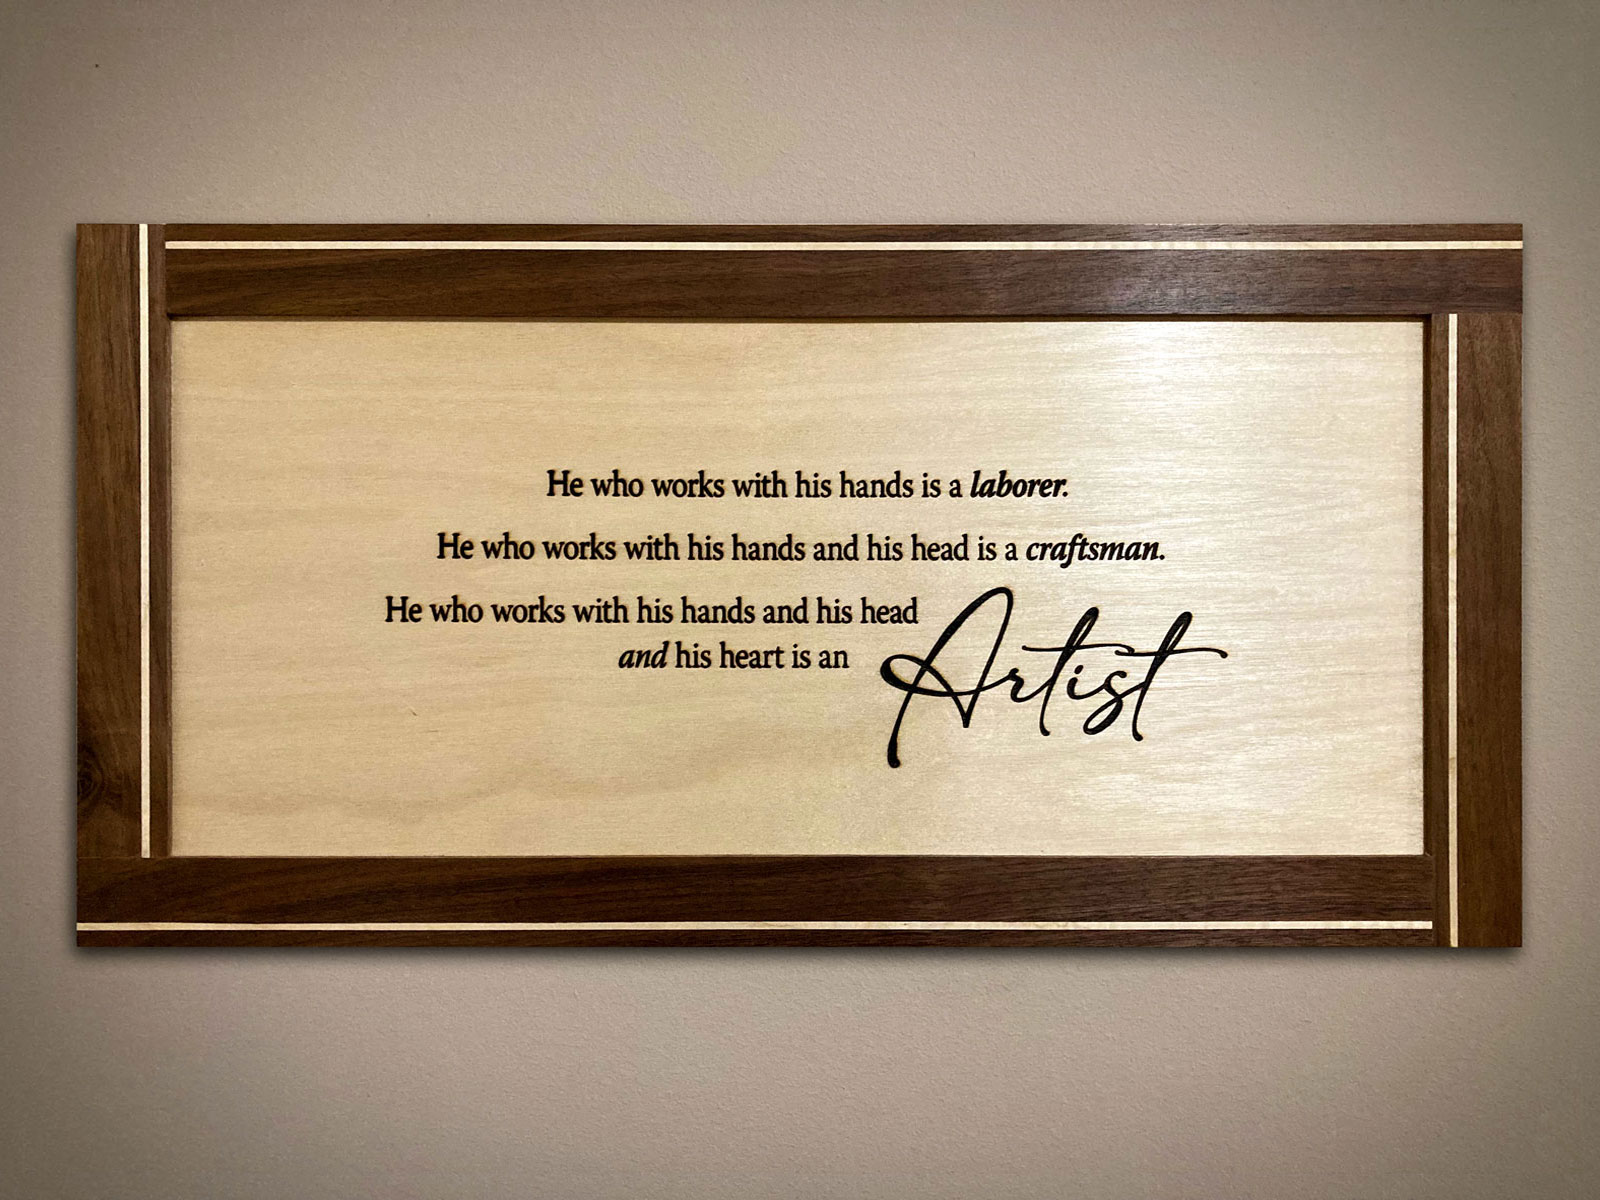 He who works with his hands is a laborer.
He who works with his hands and his head is a craftsman.
He who works with his hands and his head
and his heart is an Artist